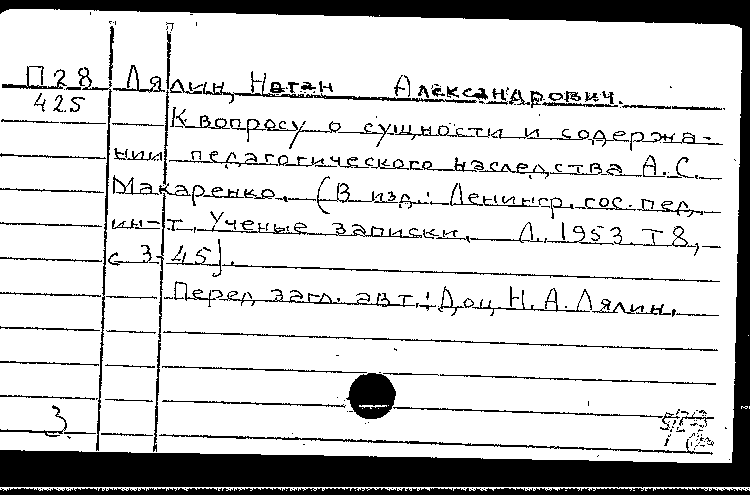 П28 Лялин, Натан Александрович.
425
К вопросу о сущности и содержа-
нии педагогического наследства А.С.
Макаренко. (В изд.: Ленингр. гос. пед.
ин-т. Ученые записки. Л., 1953. Т 8,
с 3-45).
Перед загл. авт.: Доц Н.А. Лялин.
3